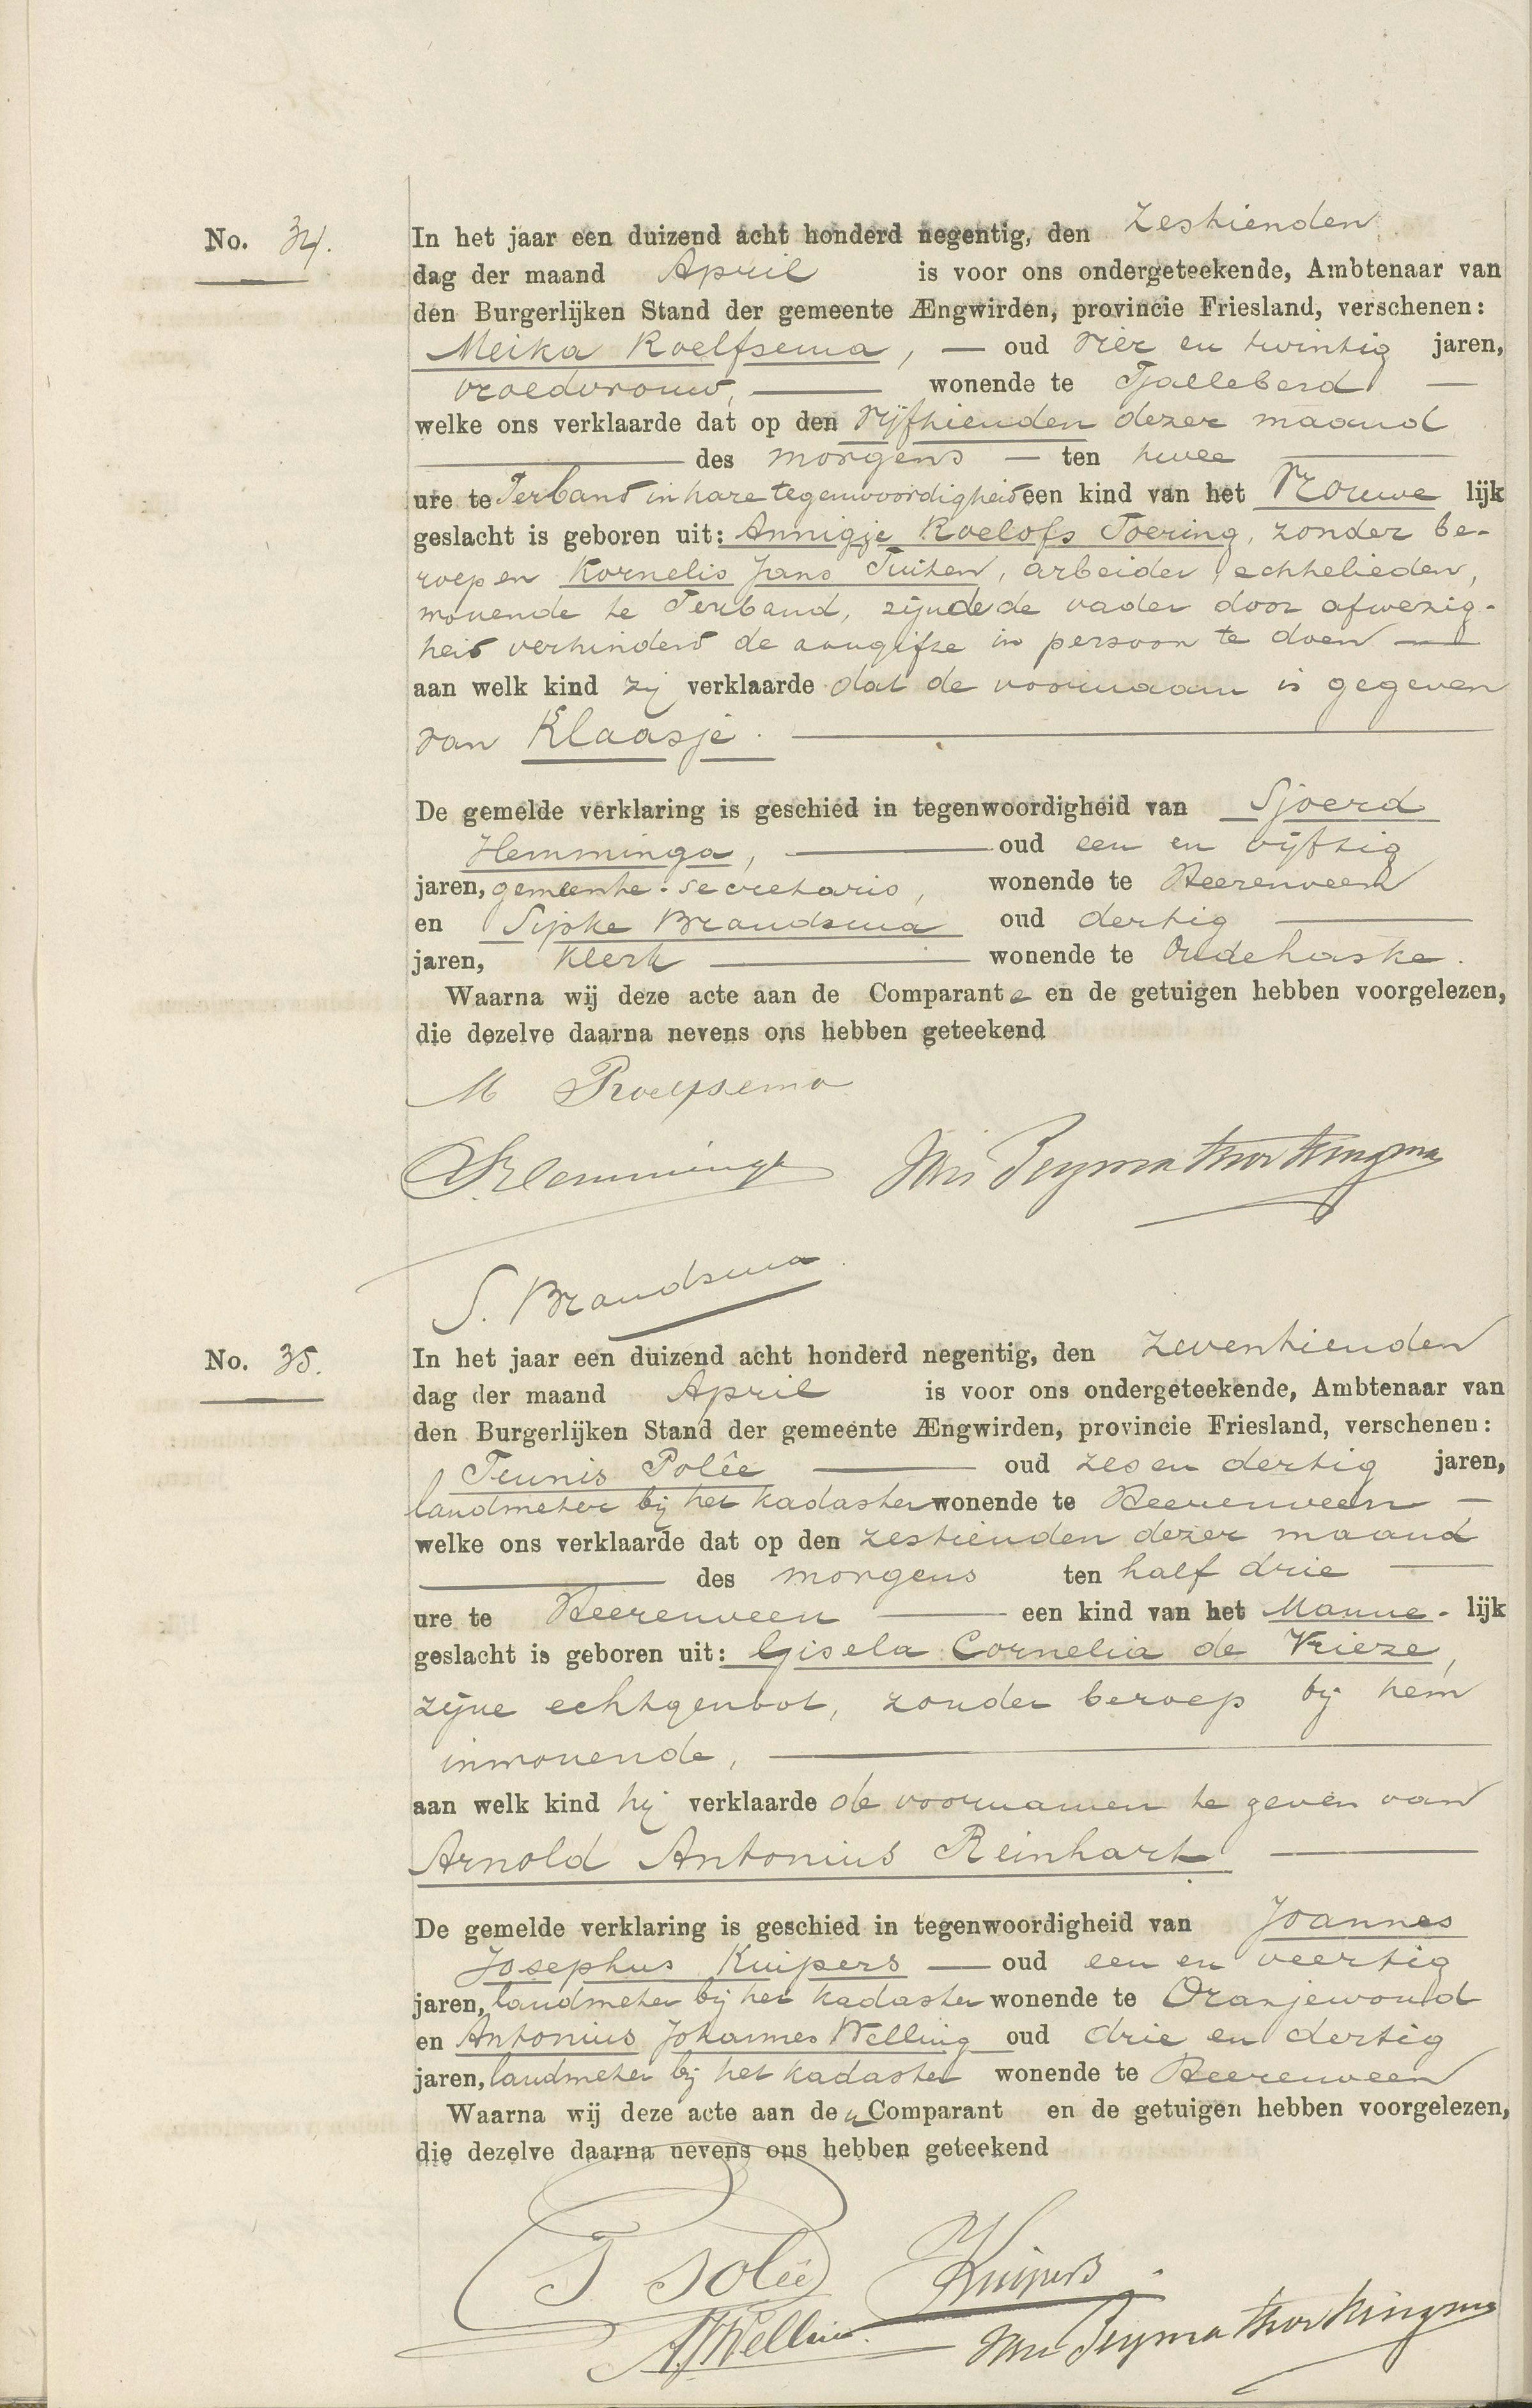 No. 34. In het jaar een duizend acht honderd negentig, den zestienden
dag der maand April is voor ons ondergeteekende, Ambtenaar van
den Burgerlijken Stand der gemeente Ængwirden, provincie Friesland, verschenen:
Meika Roelfsema, — oud vier en twintig jaren,
vroedvrouw, — wonende te Tjalleberd —
welke ons verklaarde dat op den vijftienden dezer maand
— des morgens — ten twee —
ure te Terband in hare tegenwoordigheid een kind van het Vrouwe lijk
geslacht is geboren uit: Annigje Roelofs Toering, zonder be-
roep en Kornelis Jans Tuiten, arbeider, echtelieden,
wonende te Terband, zijnde de vader door afwezig-
heid verhinderd de aangifte in persoon te doen —
aan welk kind zij verklaarde dat de voornaam is gegeven
van Klaasje. —
De gemelde verklaring is geschied in tegenwoordigheid van Sjoerd
Hemminga, — oud een en vijftig
jaren, gemeente-secretaris, wonende te Heerenveen
en Sipke Brandsma oud dertig —
jaren, klerk — wonende te Oudehaske.
Waarna wij deze acte aan de Comparante en de getuigen hebben voorgelezen,
die dezelve daarna nevens ons hebben geteekend
M Roelfsema
SHemminga
S. Brandsma
No. 35. In het jaar een duizend acht honderd negentig, den zeventienden
dag der maand April is voor ons ondergeteekende, Ambtenaar van
den Burgerlijken Stand der gemeente Ængwirden, provincie Friesland, verschenen:
Teunis Polêe — oud zes en dertig jaren,
landmeter bij het kadaster wonende te Heerenveen —
welke ons verklaarde dat op den zestienden dezer maand
— des morgens ten half drie —
ure te Heerenveen — een kind van het Manne- lijk
geslacht is geboren uit: Gisela Cornelia de Vrieze,
zijne echtgenoot, zonder beroep bij hem
inwonende, —
aan welk kind hij verklaarde de voornamen te geven van
Arnold Antonius Reinhart —
De gemelde verklaring is geschied in tegenwoordigheid van Joannes
Josephus Kuipers — oud een en veertig
jaren, landmeter bij het kadaster wonende te Oranjewoud
en Antonius Johannes Welling oud drie en dertig
jaren, landmeter bij het kadaster wonende te Heerenveen
Waarna wij deze acte aan den Comparant en de getuigen hebben voorgelezen,
die dezelve daarna nevens ons hebben geteekend
T Polêe Kuipers
AJWelling